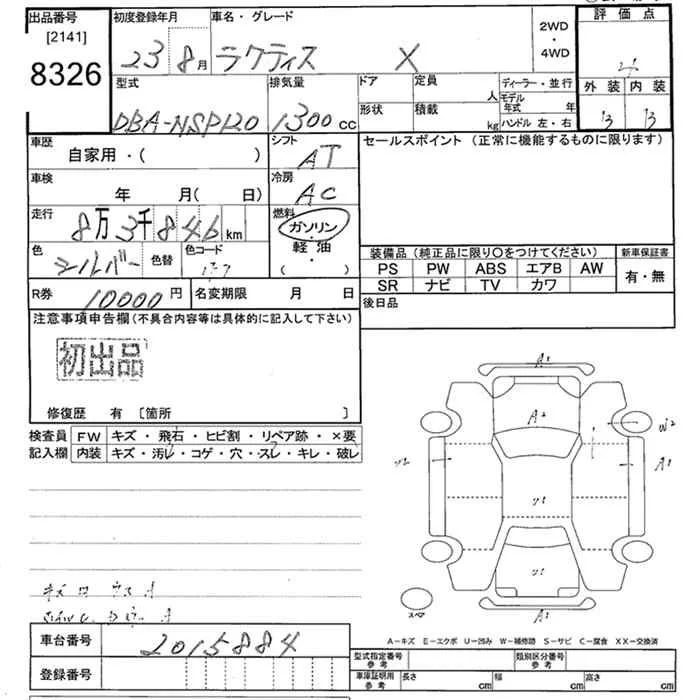 出品番号 初度登録年月 車名・グレード 2WD・4WD 評価点
[2141]
8326 23 8月 ラクティス X 4
型式 排気量 ドア 定員 人 ディーラー・並行 外装 内装
DBA-NSP120 1300cc 形状 積載 kg モデル年式 年 ハンドル 左・右 B B
車歴 シフト セールスポイント (正常に機能するものに限ります)
自家用・( ) AT
車検 冷房
年 月( 日) AC
走行 8万3千846km 燃料 ガソリン
軽・油
・
( )
色 シルバー 色替 色コード
装備品 (純正品に限り〇をつけてください) 新車保証書
PS PW ABS エアB AW 有・無
SR ナビ TV カワ
R券 10000円 名変期限 月 日 後日品
注意事項申告欄 (不具合内容等は具体的に記入して下さい)
初出品
修復歴 有 [箇所 ]
検査員 FW キズ・飛石・ヒビ割・リペア跡・×要
記入欄 内装 キズ・汚レ・コゲ・穴・スレ・キレ・破レ
A1
A2
W2
A1
U1
U1
A1
スペア
A-キズ E-エクボ U-凹み W-補修跡 S-サビ C-腐食 XX-交換済
車台番号 2015884
登録番号
型式指定番号 参考 類別区分番号 参考
車庫証明用 参考 長さ cm 幅 cm 高さ cm